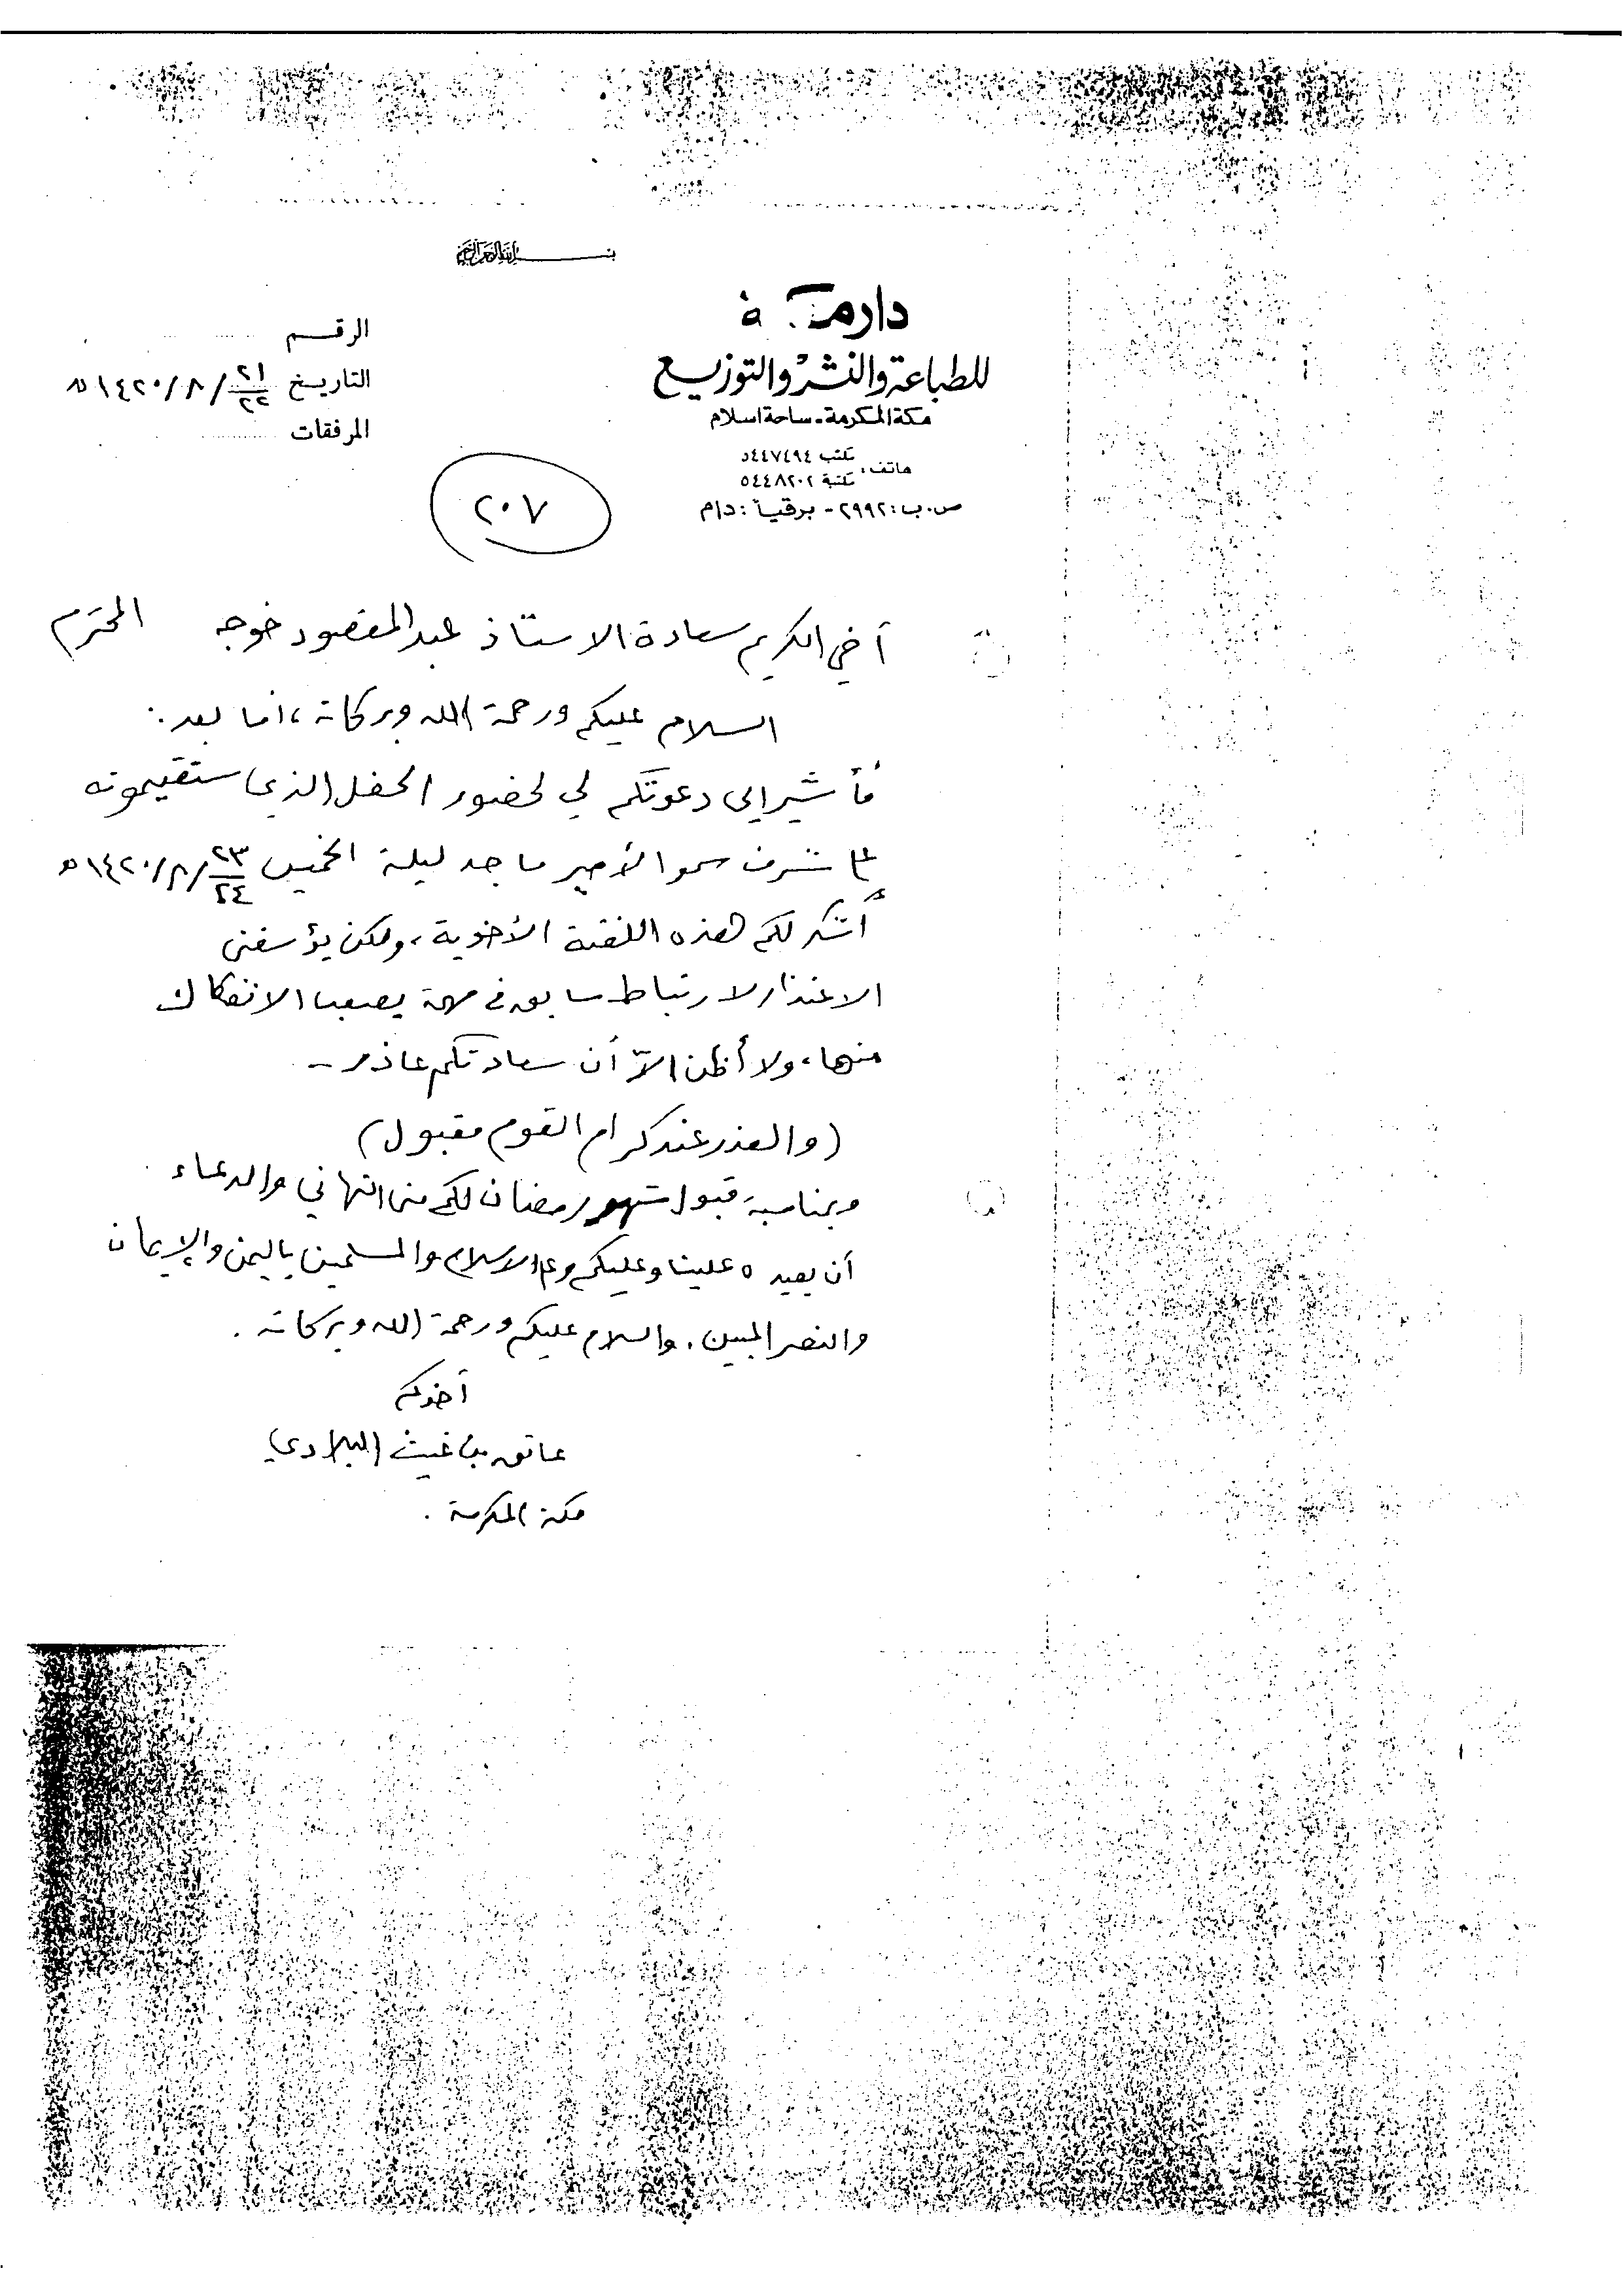 بسم الله الرحمن الرحيم
دار مكة
للطباعة والنشر والتوزيع
مكة المكرمة - ساحة اسلام
هاتف: مكتب ٥٤٤٧٤٩٤
مكتبة ٥٤٤٨٢٠٢
ص.ب: ٢٩٩٢ - برقياً: دام
الرقم
التاريخ ٢١/٢٢/٨/١٤٢٠هـ
المرفقات
٢٠٧
أخي الكريم سعادة الاستاذ عبدالمقصود خوجه المحترم
السلام عليكم ورحمة الله وبركاته، أما بعد:
فأشير إلى دعوتكم لي لحضور الحفل الذي ستقيمونه
على شرف سمو الأمير ماجد ليلة الخميس ٢٣/٢٤/٨/١٤٢٠هـ
أشكر لكم هذه اللفتة الأخوية، ولكن يؤسفني
الاعتذار لارتباط سابق في مهمة يصعب الانفكاك
منها، ولا أظن إلاّ أن سعادتكم عاذر -
(والعذر عند كرام القوم مقبول)
وبمناسبة قبول شهر رمضان لكم مني التهاني والدعاء
أن يعيده علينا وعليكم وعلى الاسلام والمسلمين باليمن والإيمان
والنصر المبين. والسلام عليكم ورحمة الله وبركاته.
أخوكم
عاتق بن غيث البلادي
مكة المكرمة.